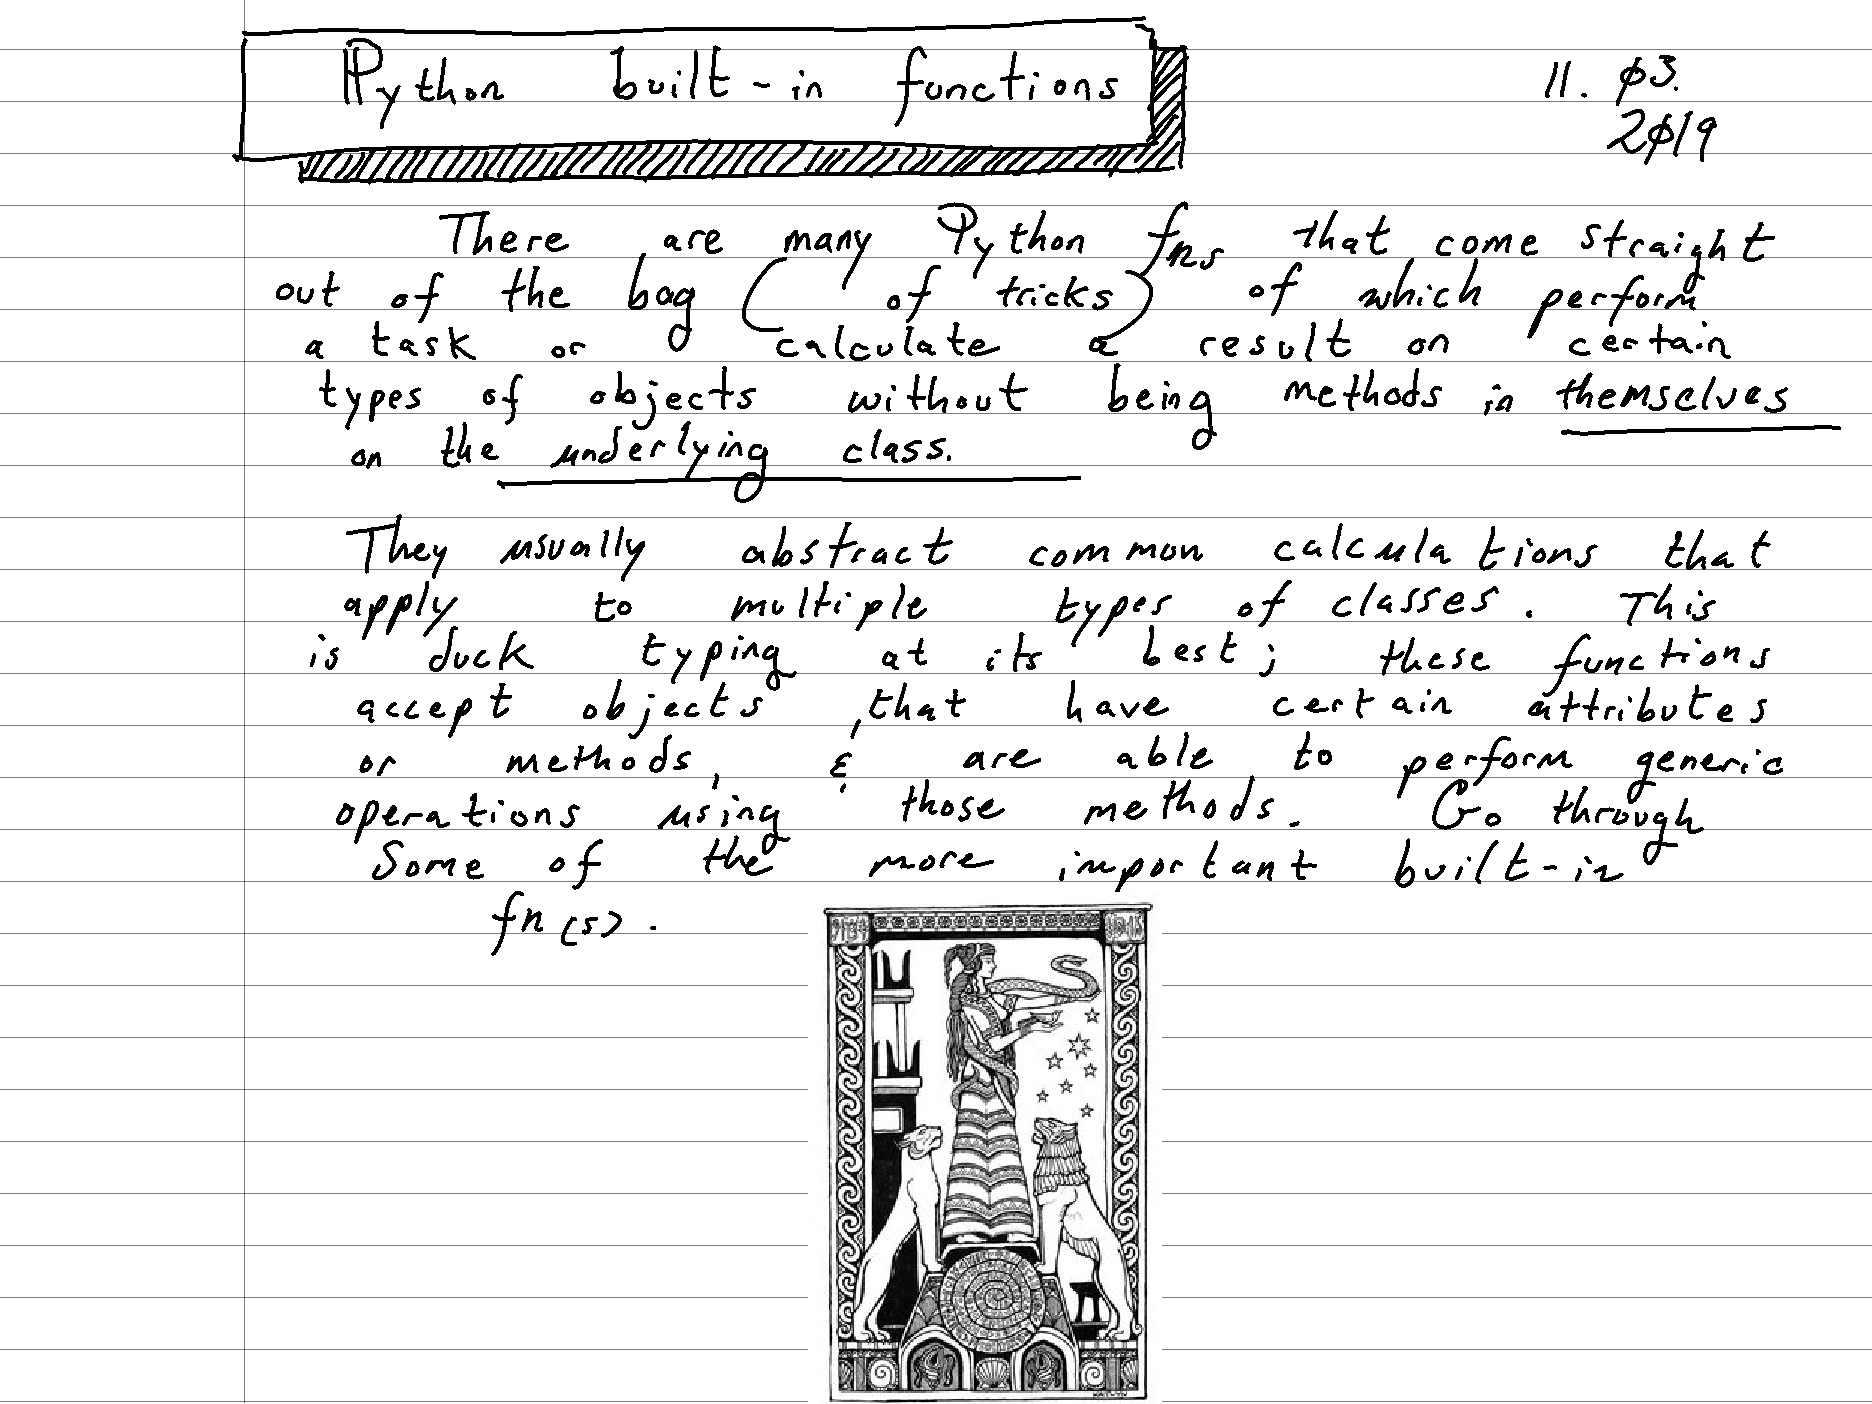 Python built-in functions
11. φ3.
2φ19
There are many Python fns that come straight
out of the bag (of tricks) of which perform
a task or calculate a result on certain
types of objects without being methods in themselves
on the underlying class.
They usually abstract common calculations that
apply to multiple types of classes. This
is duck typing at its best; these functions
accept objects, that have certain attributes
or methods, & are able to perform generic
operations using those methods. Go through
Some of the more important built-in
fn(s).